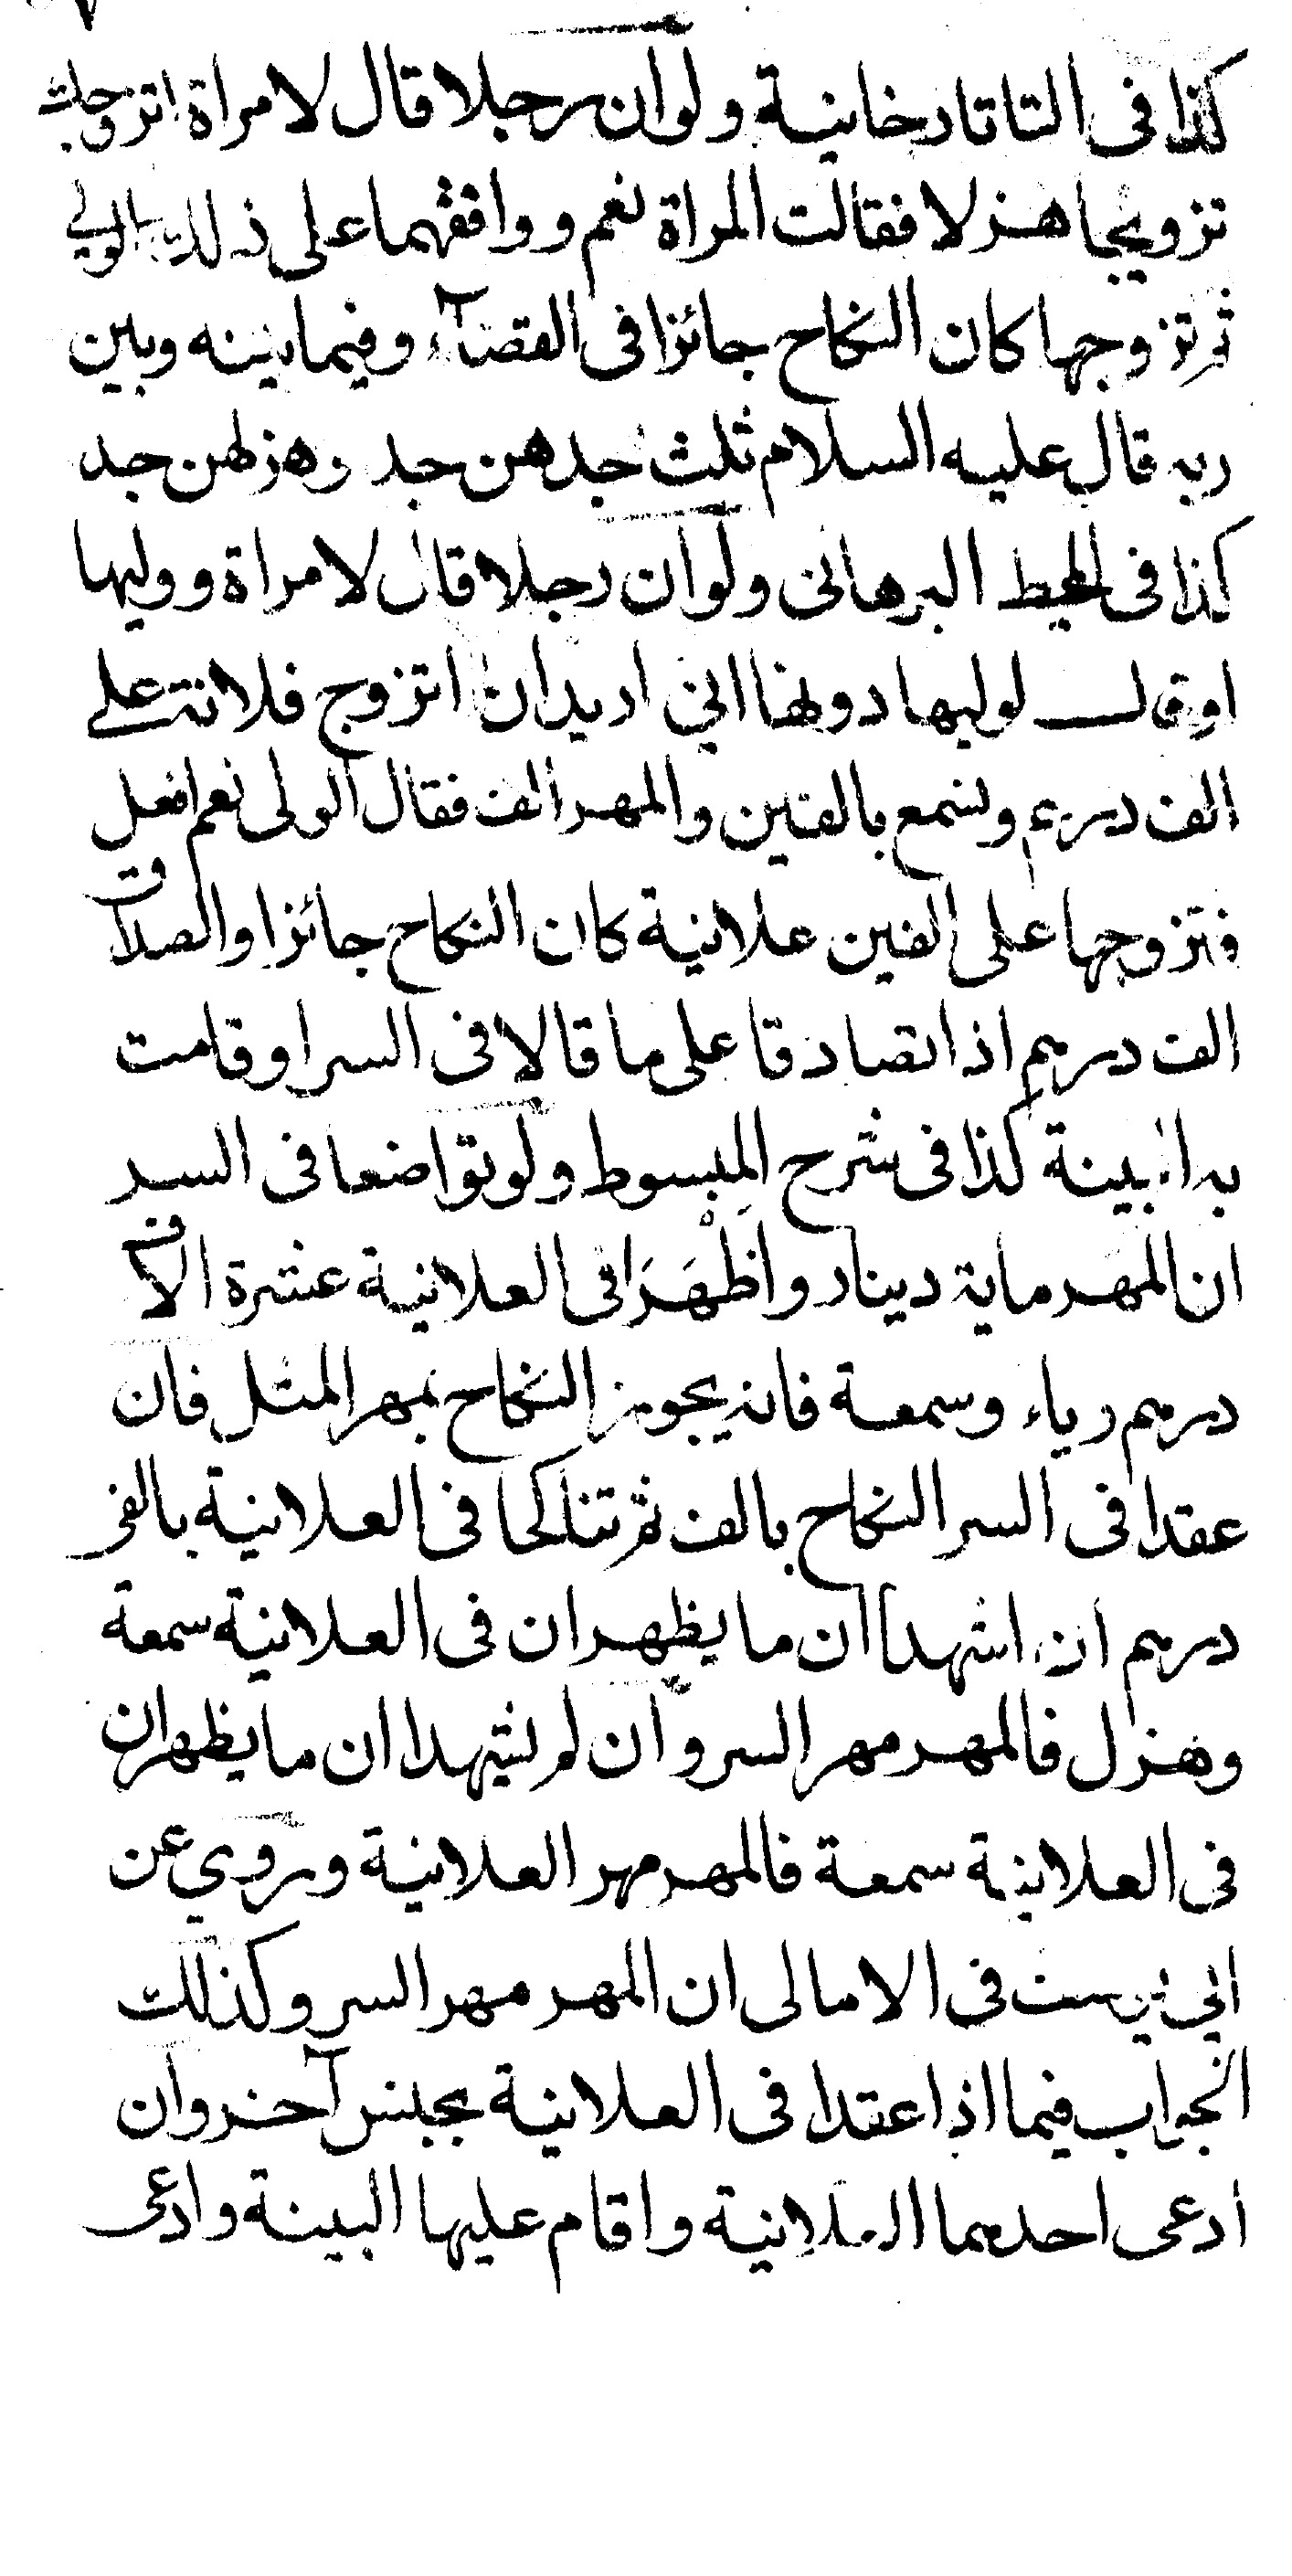 كذا فى التاتارخانية ولو ان رجلا قال لامراة اتزوجك
تزويجا هزلا فقالت المراة نعم ووافقهما على ذلك الولي
ثم تزوجها كان النكاح جائزا فى القضآء وفيما بينه وبين
ربه قال عليه السلام ثلث جدهن جد وهزلهن جد
كذا فى المحيط البرهانى ولو ان رجلا قال لامراة ووليها
او قال لوليها دونها انى اريد ان اتزوج فلانة على
الف درهم ونسمع بالفين والمهر الف فقال الولى نعم افعل
فتزوجها على الفين علانية كان النكاح جائزا والصداق
الف درهم اذا تصادقا على ما قالا فى السر او قامت
به البينة كذا فى شرح المبسوط ولو تواضعا فى السر
ان المهر ماية دينار واظهرا فى العلانية عشرة الاف
درهم رياء وسمعة فانه يجوز النكاح بمهر المثل فان
عقدا فى السر النكاح بالف ثم تناكحا فى العلانية بالفى
درهم ان اشهدا ان ما يظهران فى العلانية سمعة
وهزل فالمهر مهر السر وان لم يشهدا ان ما يظهران
فى العلانية سمعة فالمهر مهر العلانية وروي عن
ابي يوسف فى الامالى ان المهر مهر السر وكذلك
الجواب فيما اذا عقدا فى العلانية بجنس آخر وان
ادعى احدهما العلانية واقام عليها البينة وادعى